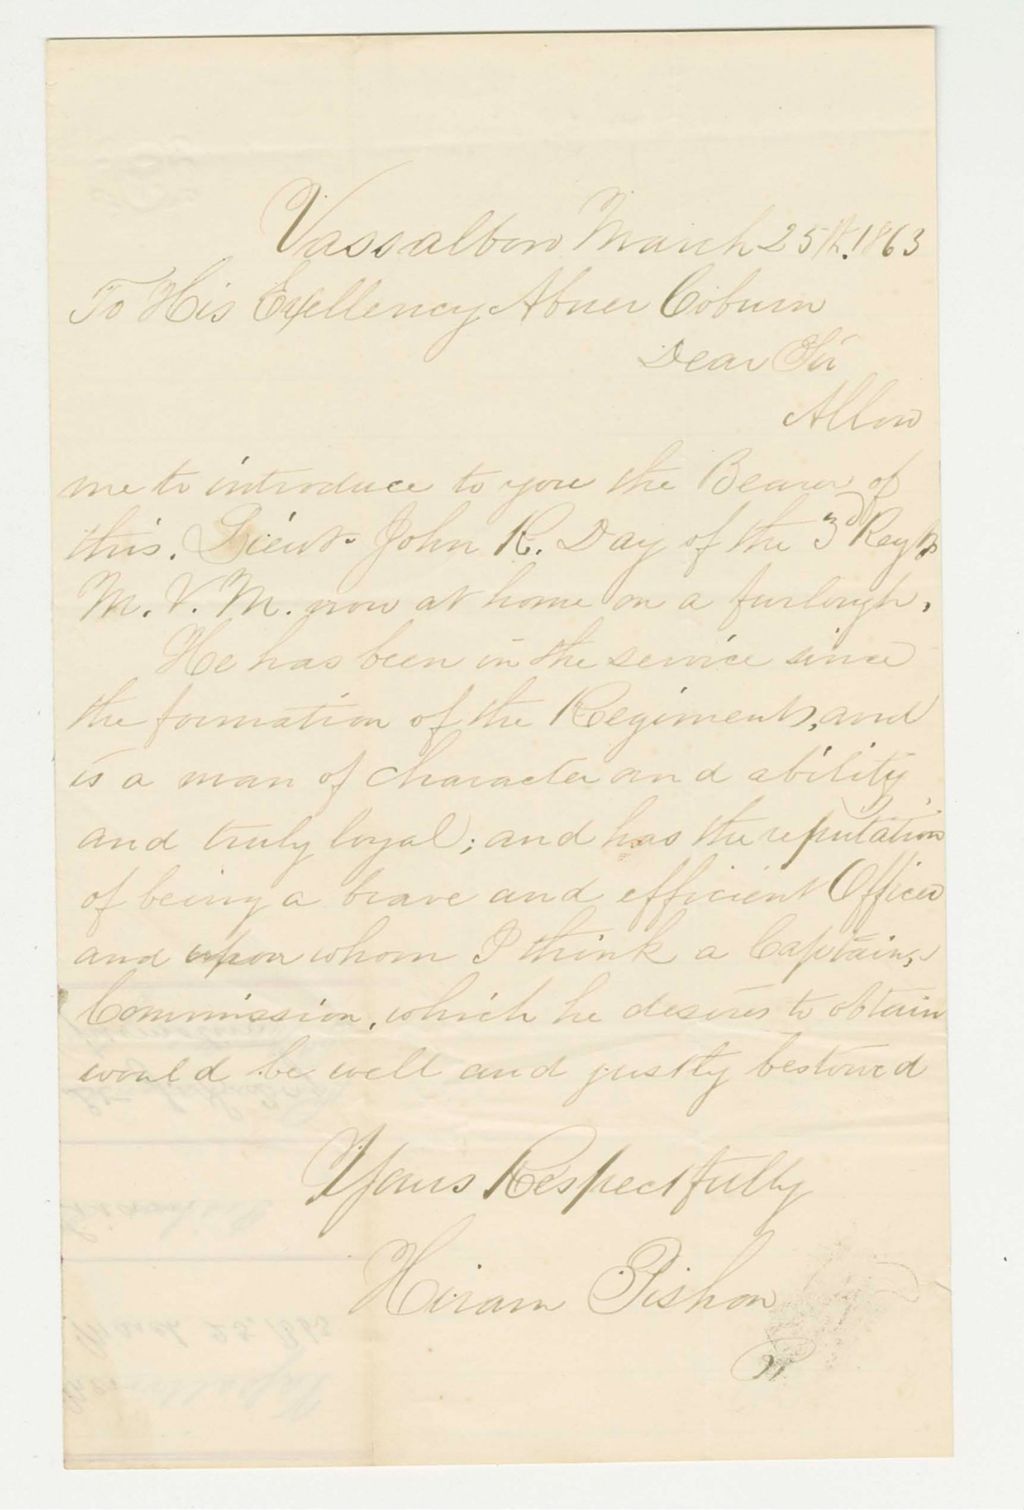 Vassalboro March 25th. 1863
To His Exellency Abner Coburn
Dear Sir
Allow
me to introduce to you the Bearer of
this. Lieut. John R. Day of the 3d Regt
M. V. M. now at home on a furlough,
He has been in the service since
the formation of the Regiments, and
is a man of character and ability
and truly loyal; and has the reputation
of being a brave and efficient Officer
and upon whom I think a Captains,
Commission, which he desires to obtain
would be well and justly bestowed
Yours Respectfully
Hiram Pishon